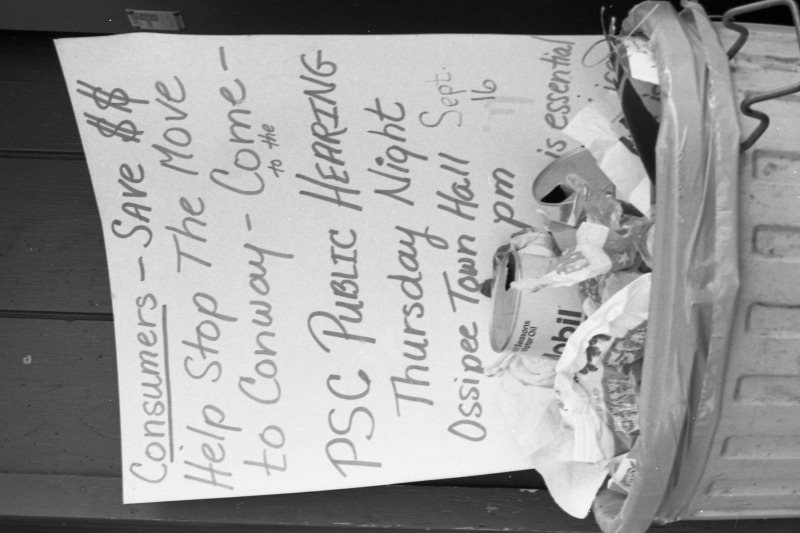 Consumers - SAVE $$
Help Stop The Move
to Conway - Come -
to the
PSC PUBLIC HEARING
Thursday Night
Sept.
16
Ossipee Town Hall
pm
is essential
Seasons
Motor Oil
obil